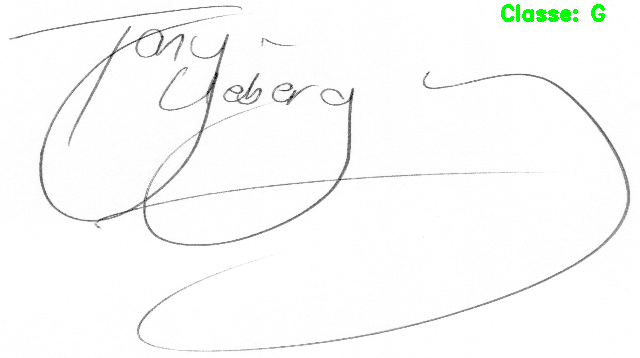 Classe: G
Tony
Yeberg